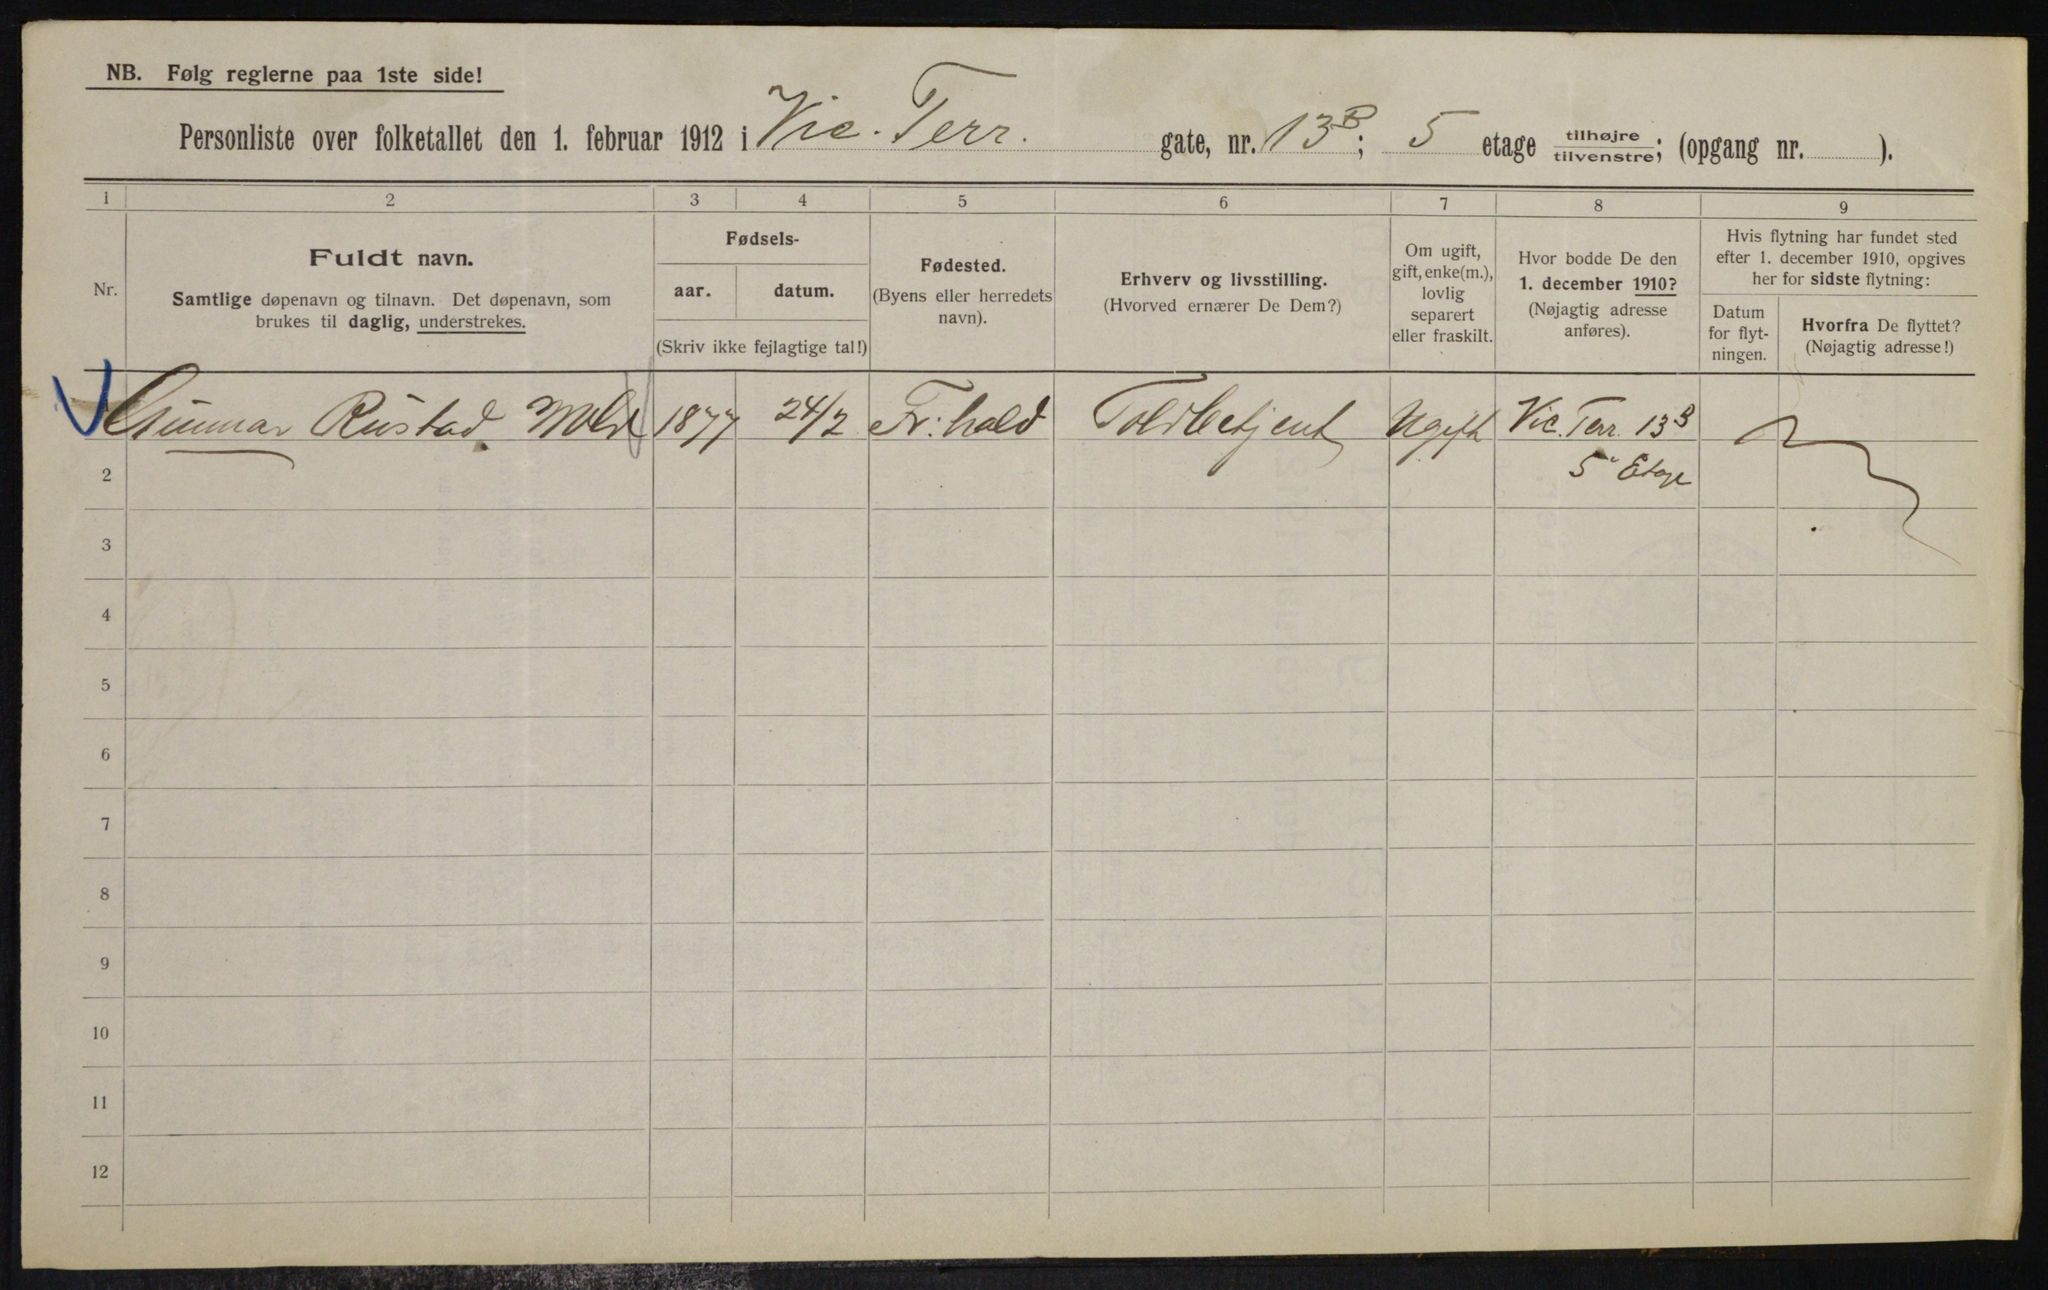 NB. Følg reglerne paa 1ste side!
Personliste over folketallet den 1. februar 1912 i Vic. Terr. gate, nr. 13B; 5 etage tilhøjre/tilvenstre; (opgang nr. ).
1 2 3 4 5 6 7 8 9
Nr.
Fuldt navn.
Samtlige døpenavn og tilnavn. Det døpenavn, som
brukes til daglig, understrekes.
Fødsels-
aar. datum.
(Skriv ikke fejlagtige tal!)
Fødested.
(Byens eller herredets
navn).
Erhverv og livsstilling.
(Hvorved ernærer De Dem?)
Om ugift,
gift, enke(m.),
lovlig
separert
eller fraskilt.
Hvor bodde De den
1. december 1910?
(Nøjagtig adresse
anføres).
Hvis flytning har fundet sted
efter 1. december 1910, opgives
her for sidste flytning:
Datum
for flyt-
ningen.
Hvorfra De flyttet?
(Nøjagtig adresse!)
Gunnar Rustad 1877 24/2 Fr:hald Toldbetjent Ugift Vic. Terr. 13B
2 5 Etage
3
4
5
6
7
8
9
10
11
12